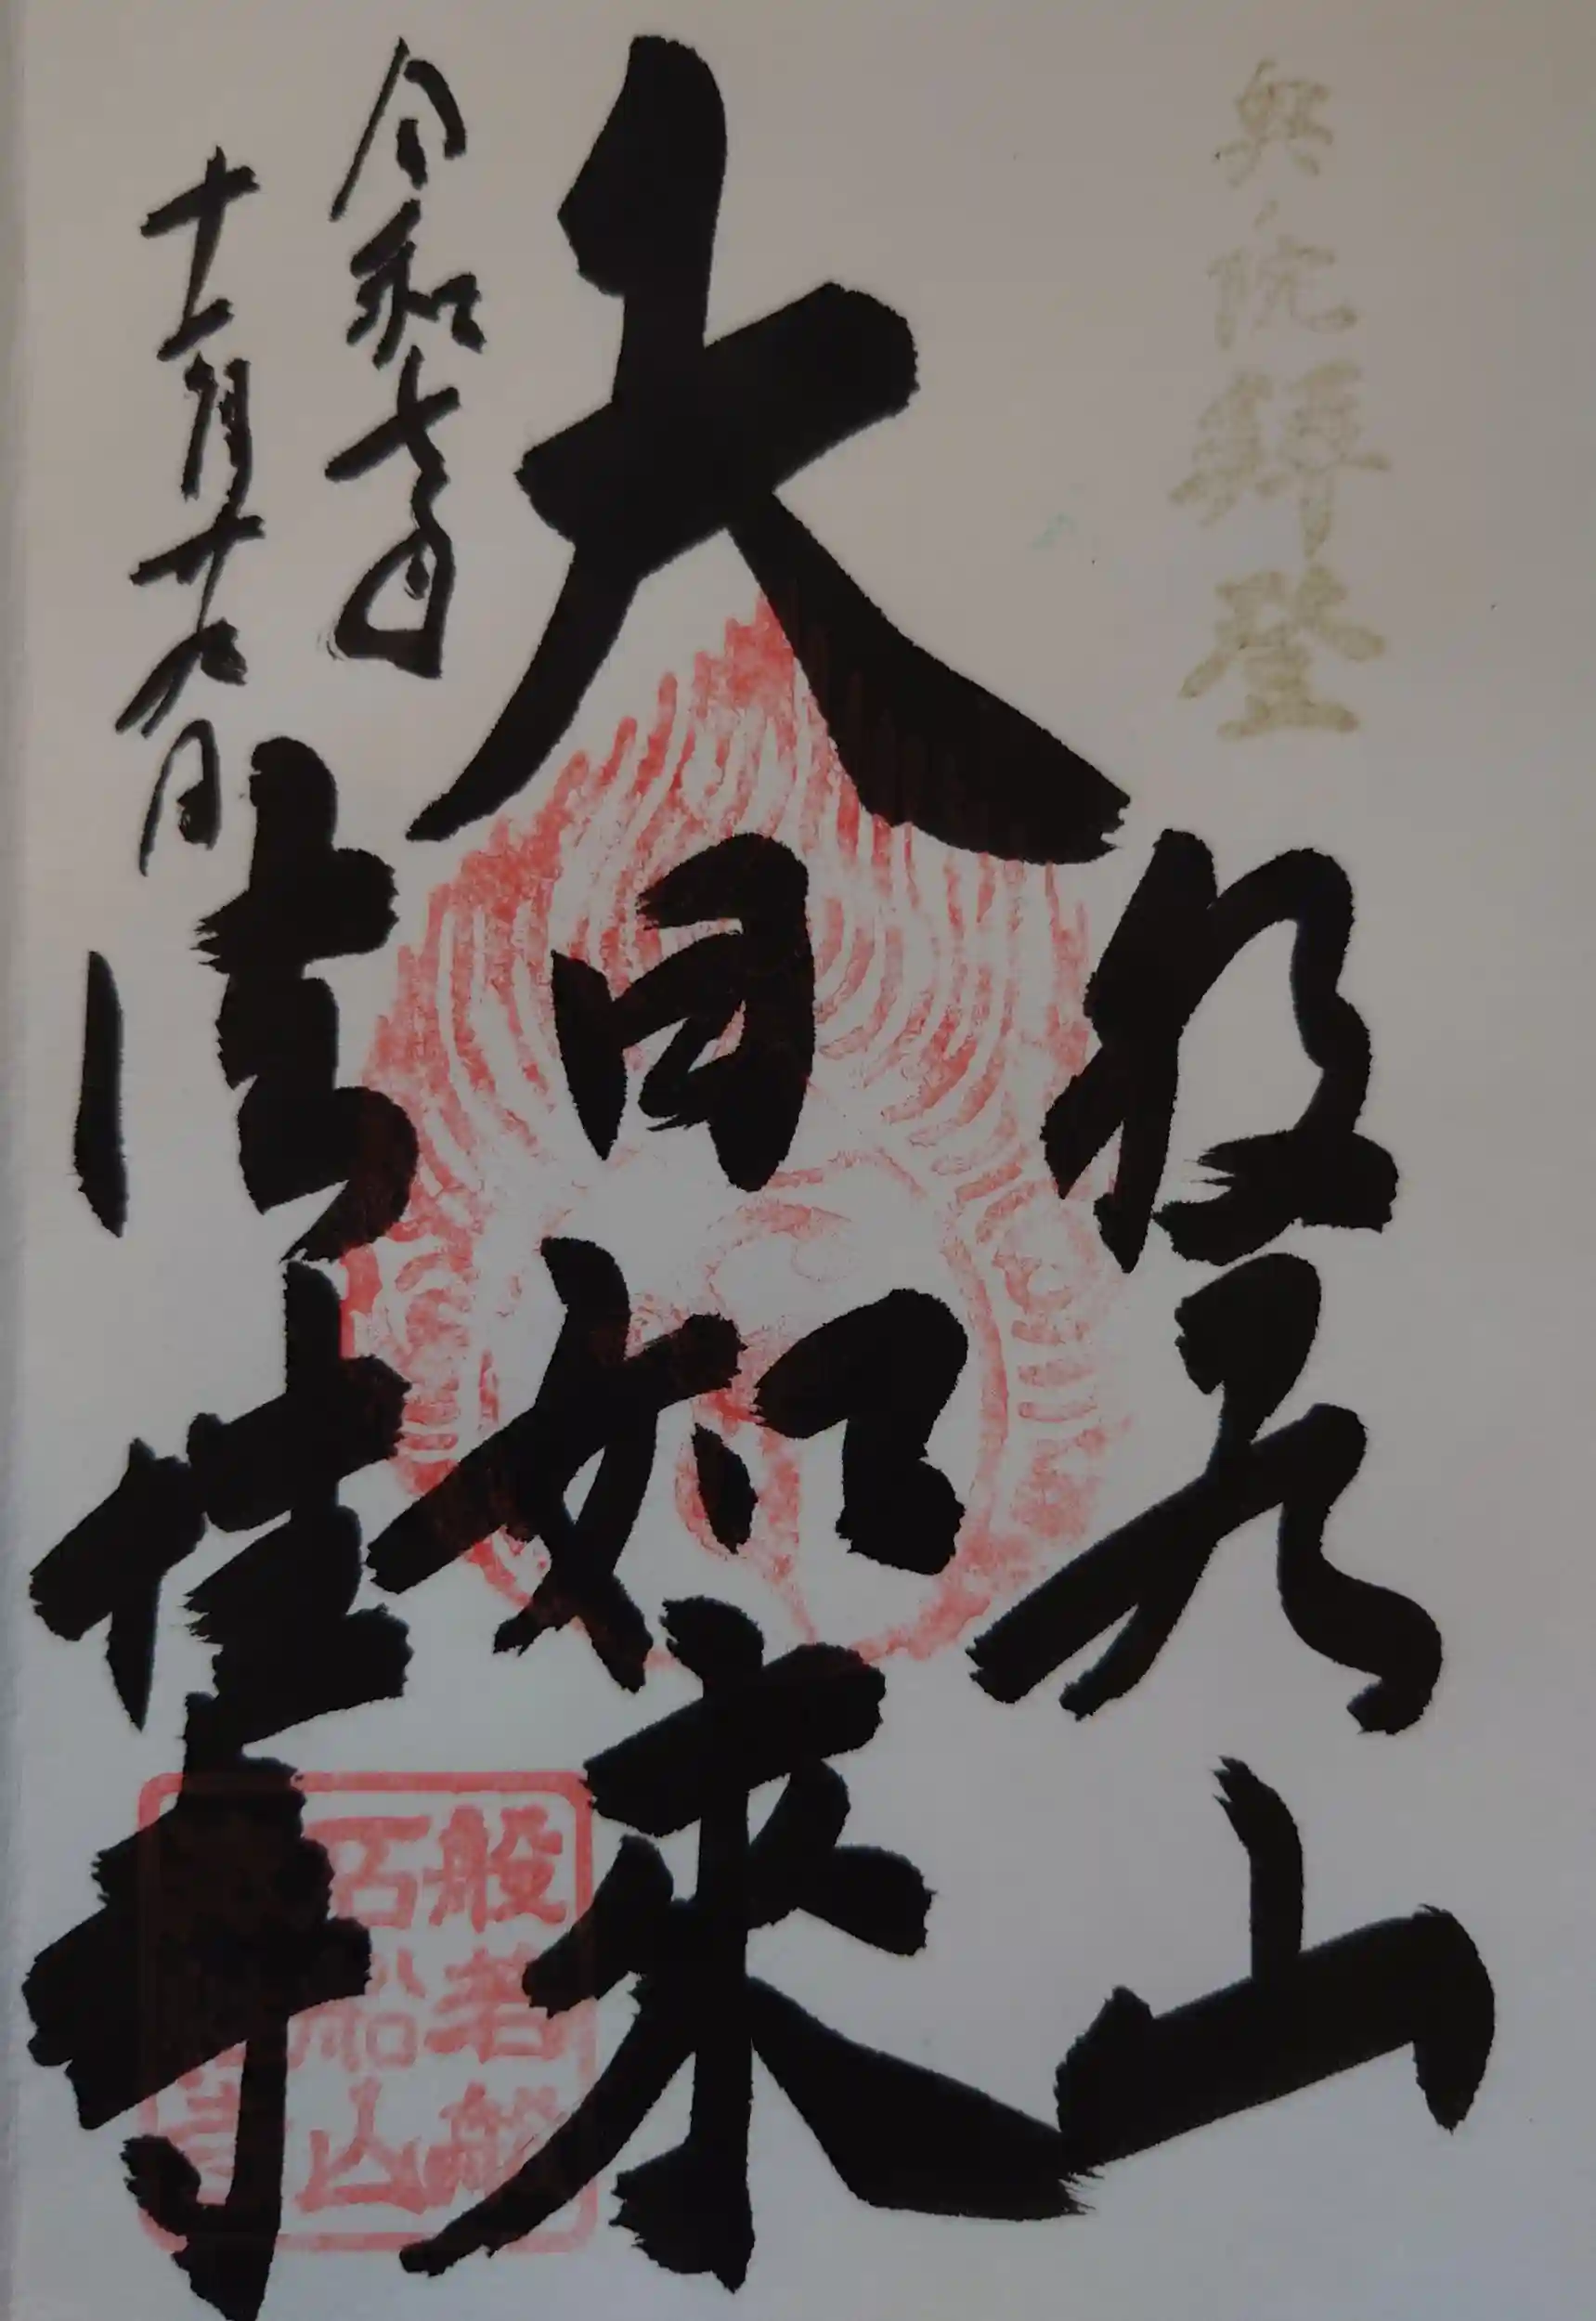 奥院拜登
般若山
大日如来
令和七年
十一月十九日
法性寺
般若船
石船山
寺